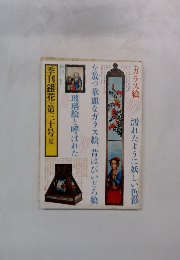 ガラス絵
濡れたように妖しい色彩
を放つ華麗なガラス絵、昔はびいどろ絵
玻璃絵と呼ばれた
季刊「銀花」第三十号 夏